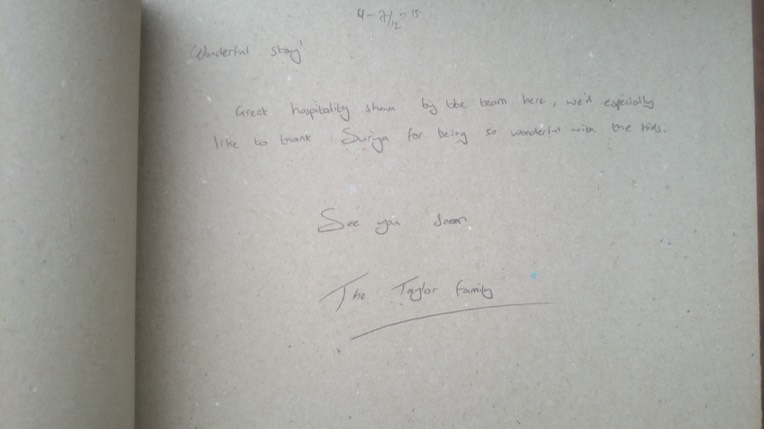 4-7/12-15
Wonderful stay!
Great hospitality shown by the team here, we'd especially
like to thank Suriya for being so wonderful with the kids.
See you soon
The Taylor family